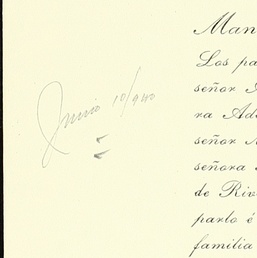 Man
Los pa
señor
Junio 10/940
ra Ad
señor
señora
de Riv
parlo é
familia